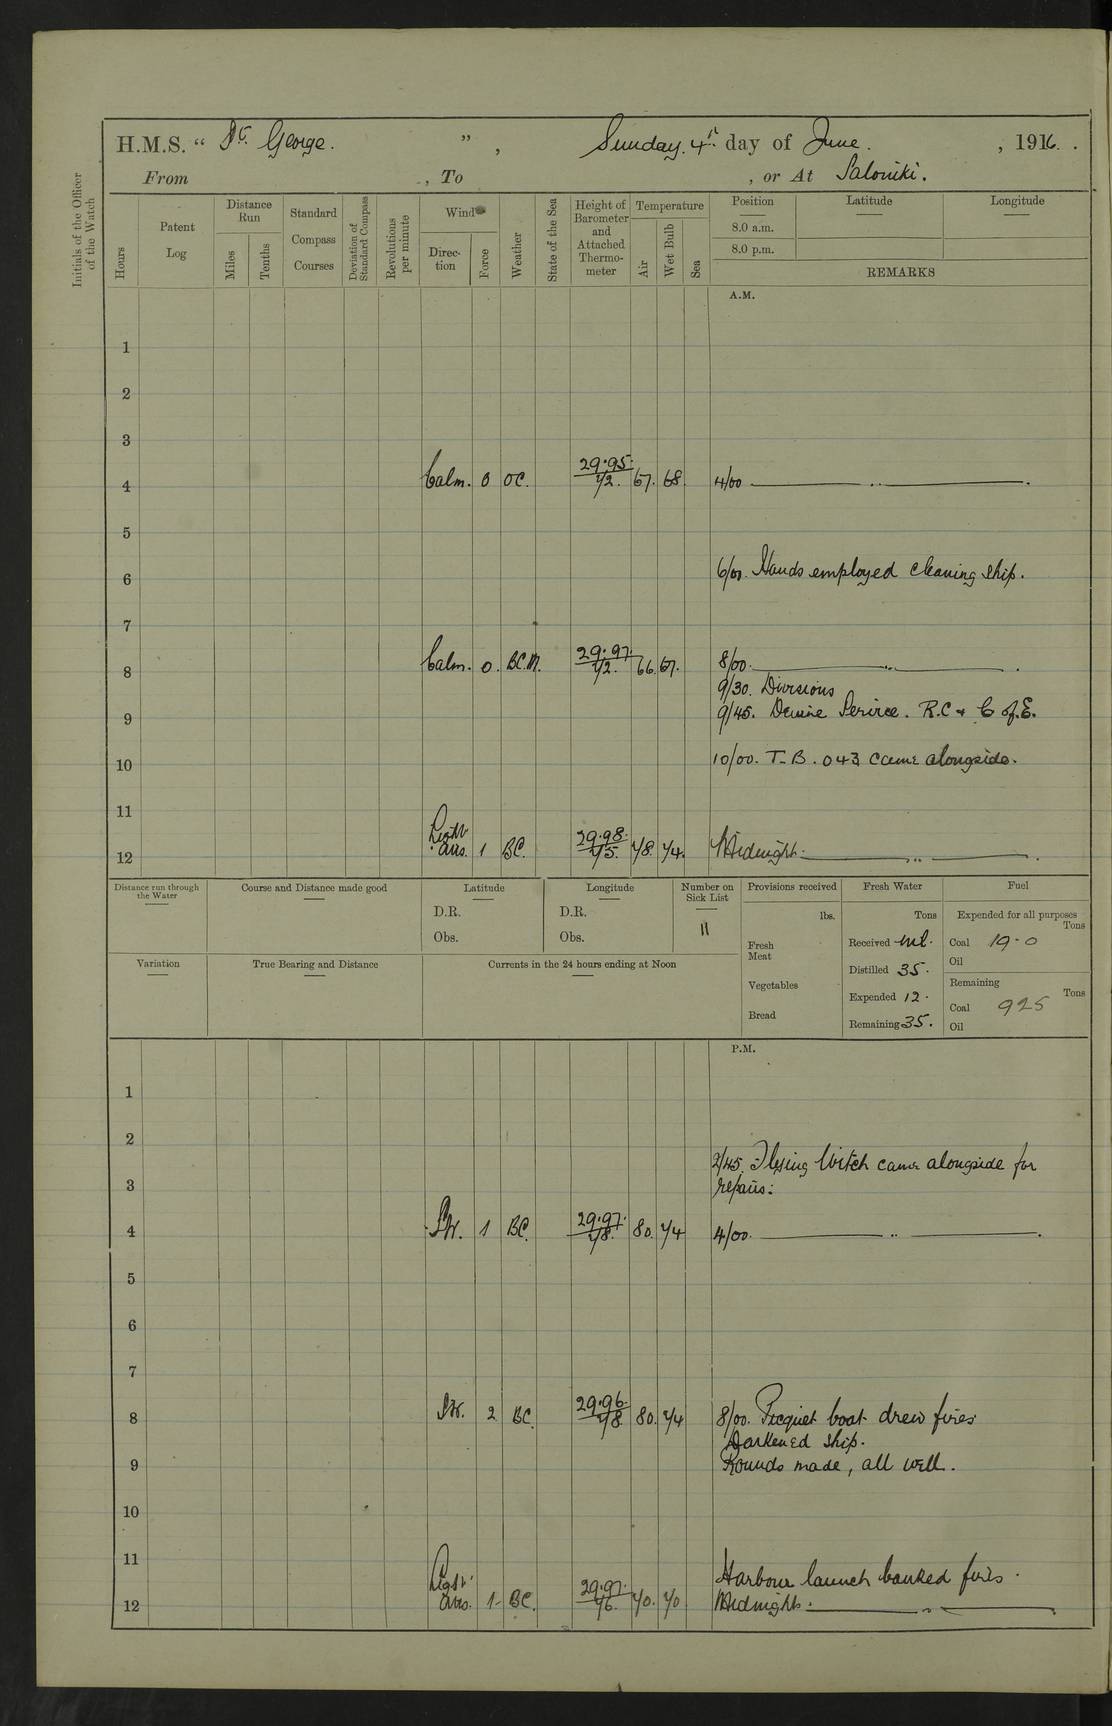 H.M.S. “ St. George. ” , Sunday. 4th day of June. , 1916.
From , To , or At Saloniki.
Initials of the Officer of the Watch
Hours
Patent Log
Distance Run
Miles
Tenths
Standard Compass Courses
Deviation of Standard Compass
Revolutions per minute
Wind
Direction
Force
Weather
State of the Sea
Height of Barometer and Attached Thermometer
Temperature
Air
Wet Bulb
Sea
Position Latitude Longitude
8.0 a.m.
8.0 p.m.
REMARKS
A.M.
1
2
3
4 Calm. 0 OC. 29.95. 72. 67. 68. 4/00 .
5
6 6/00. Hands employed cleaning ship.
7
8 Calm. 0. B.C.M. 29.97. 72. 66. 67. 8/00. .
9/30. Divisions
9 9/45. Devine Serivce. R.C & C of.E.
10 10/00. T.B. 043 came alongside.
11
12 Light airs. 1 BC. 29.98. 75. 78. 74. Midnight. .
Distance run through the Water
Course and Distance made good
Latitude
D.R.
Obs.
Longitude
D.R.
Obs.
Number on Sick List
11
Provisions received
lbs.
Fresh Meat
Vegetables
Bread
Fresh Water
Tons
Received nil.
Distilled 35.
Expended 12.
Remaining 35.
Fuel
Expended for all purposes
Tons
Coal 19.0
Oil
Remaining
Tons
Coal 925
Oil
Variation
True Bearing and Distance
Currents in the 24 hours ending at Noon
P.M.
1
2
2/45. Flying Witch came alongside for
3 repairs.
4 SW. 1 BC. 29.97. 78. 80. 74 4/00. .
5
6
7
8 SW. 2 BC. 29.96. 78. 80. 74 8/00. Picquet boat drew fires
Darkened ship.
9 Rounds made, all well.
10
11
Harbour launch banked fires.
12 Light airs. 1 BC. 29.97. 76. 70. 70 Midnight. .